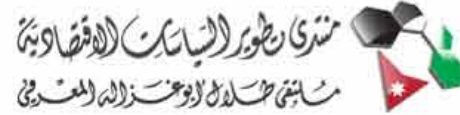 منتدى تطوير السياسات الاقتصادية
ملتقى طلال أبوغزاله المعرفي